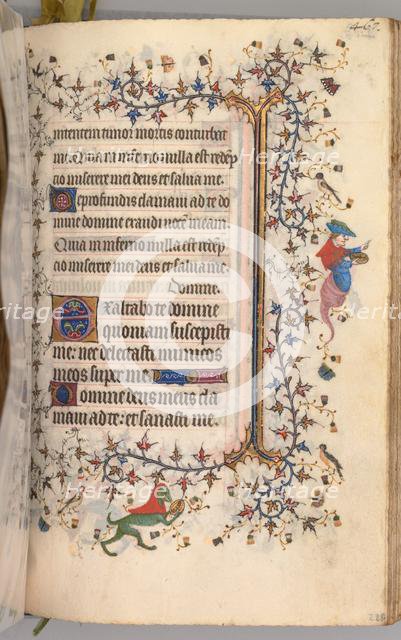 467.
intentem timor mortis conturbat
me. in inferno nulla est redēp
cio miserere mei deus et salva me.
De profundis clamavi ad te do
mine domine exaudi vocē meam.
Quia in inferno nulla est redēp
cio miserere mei deus et salva me
Domine.
Exaltabo te domine
quoniam suscepisti
me: nec delectasti inimicos
meos super me.
Domine deus meus cla
mavi ad te: et sanasti me.
Heritage Images
228